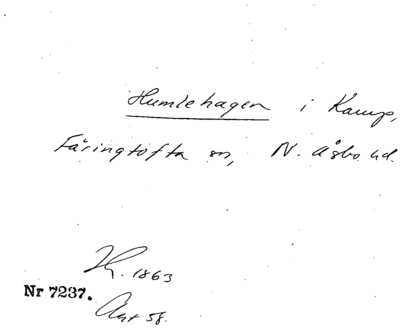 Humlehagen i Kamp,
Färingtofta sn, N. Åsbo hd.
H. 1863
Nr 7237.
Avst 58.